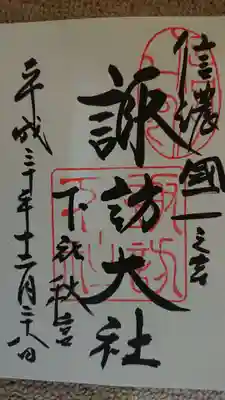 信濃國一之宮
諏訪大社
下社秋宮
平成三十年十二月二十八日